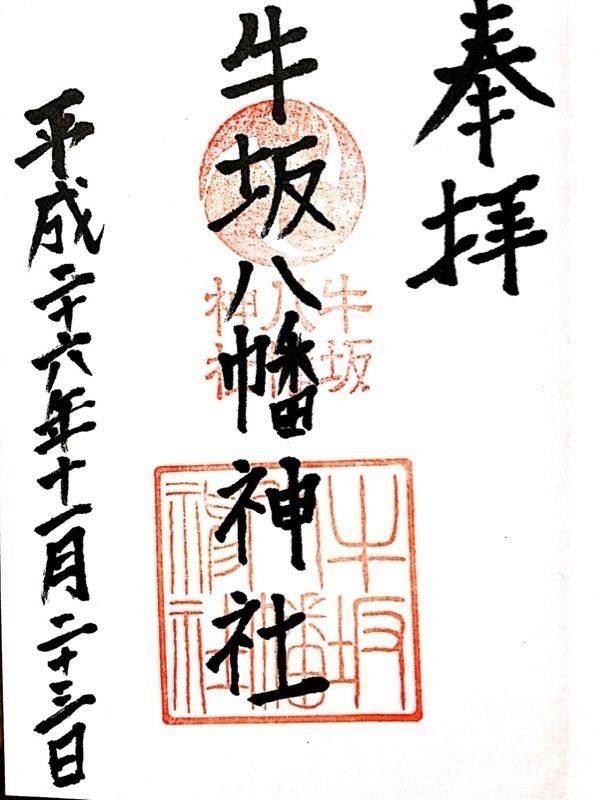 奉拝
牛坂八幡神社
牛坂
八幡
神社
牛坂
八幡
神社
平成二十六年十一月二十三日